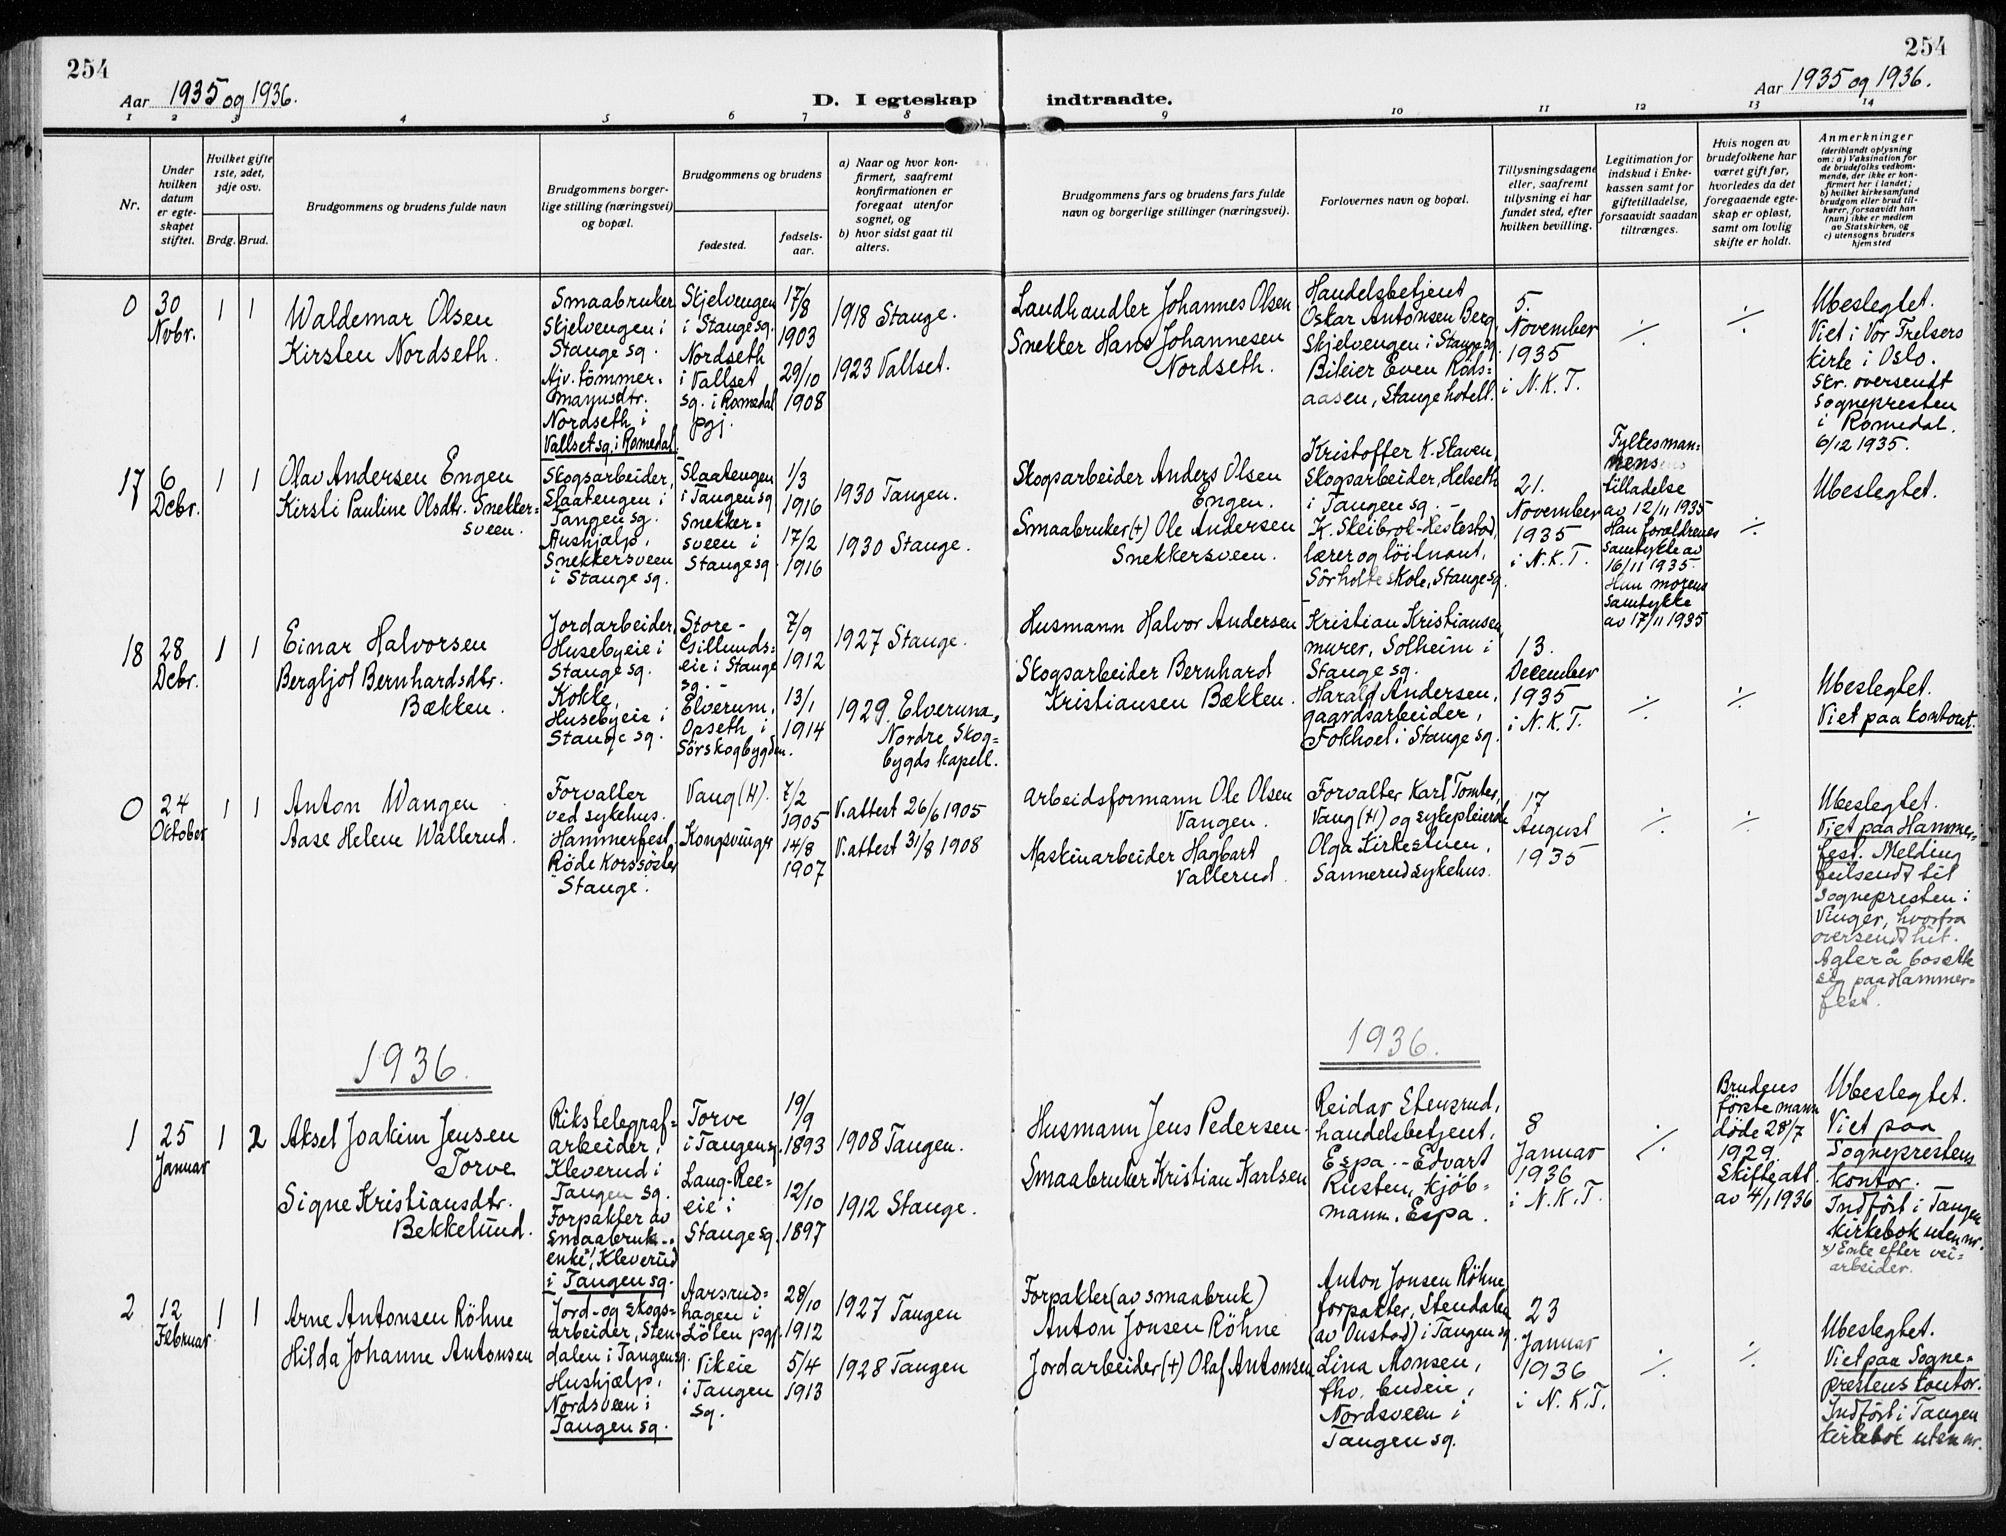 254
254
Aar 1935 og 1936.
D. I egteskap indtraadte.
Aar 1935 og 1936.
1 2 3 4 5 6 7 8 9 10 11 12 13 14
Nr.
Under
hvilken
datum
er egte-
skapet
stiftet.
Hvilket gifte
1ste, 2det,
3dje osv.
Brdg. Brud.
Brudgommens og brudens fulde navn
Brudgommens borger-
lige stilling (næringsvei)
og bopæl.
Brudgommens og brudens
fødested.
fødsels-
aar.
a) Naar og hvor kon-
firmert, saafremt
konfirmationen er
foregaat utenfor
sognet, og
b) hvor sidst gaat til
alters.
Brudgommens fars og brudens fars fulde
navn og borgerlige stillinger (næringsvei).
Forlovernes navn og bopæl.
Tillysningsdagene
eller, saafremt
tillysning ei har
fundet sted, efter
hvilken bevilling.
Legitimation for
indskud i Enke-
kassen samt for
giftetilladelse,
forsaavidt saadan
tiltrænges.
Hvis nogen av
brudefolkene har
været gift før,
hvorledes da det
foregaaende egte-
skap er opløst,
samt om lovlig
skifte er holdt.
Anmerkninger
(deriblandt oplysning
om: a) Vaksination for
de brudefolks vedkom-
mende, der ikke er kon-
firmert her i landet;
b) hvilket kirkesamfund
brudgom eller brud til-
hører, forsaavidt han
(hun) ikke er medlem
av Statskirken, og
c) utensogns bruders
hjemsted
0
30
Novbr.
1 1
Waldemar Olsen
Kirsten Nordseth.
Smaabruker
Skjelvengen i
Stange sg.
Hjv. tömmer-
mannsdtr.
Nordseth i
Vallset sg. i Romedal.
Skjelvengen
i Stange sg.
Nordseth
i Vallset
sg. i Romedal
pgj.
17/8
1903
29/10
1908
1918 Stange.
1923 Vallset.
Landhandler Johannes Olsen
Snekker Hans Johannesen
Nordseth.
Handelsbetjent
Oskar Antonsen Berg
Skjelvengen i Stange sg
Bileier Even Röds-
aasen, Stange hotell.
5.
November
1935
i N.K.T.
./.
./.
Ubeslegtet.
Viet i Vor Frelsers
kirke i Oslo.
Skr. oversendt
Sognepresten
i Romedal.
6/12 1935.
17
6
Debr.
1 1
Olav Andersen Engen
Kirsti Pauline Olsdtr. Snekker-
sveen.
Skogsarbeider,
Slaatengen i
Tangen sg.
Hushjælp,
Snekkersveen
i Stange sg.
Slaatengen
i Tangen sg
Snekker-
sveen i
Stange sg
1/3
1916
17/2
1916
1930 Tangen.
1930 Stange.
Skogsarbeider Anders Olsen
Engen.
Smaabruker (+) Ole Andersen
Snekkersveen.
Kristoffer K. Staven,
Skogsarbeider, Helseth
i Tangen sg. -
K. Skeibrok-Heskestad,
lærer og löitnant,
Sörholte skole, Stange sg.
21.
November
1935
i N.K.T.
Fylkesman-
nens
tilladelse
av 12/11 1935
Han forældrenes
samtykke av
16/11 1935
Hun morens
samtykke
av 17/11 1935
./.
Ubeslegtet.
18
28
Debr.
1 1
Einar Halvorsen
Bergljot Bernhardsdtr.
Bækken.
Jordarbeider,
Husebyeie i
Stange sg.
Kokke,
Husebyeie i
Stange sg.
Store-
Gillunds-
eie i Stange
sg. -
Elverum,
Opseth i
Sörskogbygden.
7/9
1912
13/1
1914
1927 Stange.
1929 Elverum,
Nordre Skog-
bygds kapell.
Husmann Halvor Andersen
Skogsarbeider Bernhard
Kristiansen Bækken.
Kristian Kristiansen,
murer, Solheim i
Stange sg.
Harald Andersen,
gaardsarbeider,
Fokhol i Stange sg.
13.
December
1935
i N.K.T.
./.
./.
Ubeslegtet.
Viet paa kontoret.
0
24
Oktober
1 1
Anton Wangen
Aase Helene Wallerud.
Forvalter
ved sykehus.
Hammerfest.
Röde Korssöster
Stange.
Vang (H).
Kongsvinger
7/2
1905
14/8
1907
V.attest 26/6 1905
V.attest 31/8 1908
Arbeidsformann Ole Olsen
Vangen.
Maskinarbeider Hagbart
Vallerud.
Forvalter Karl Tomter,
Vang (H) og sykepleierske
Olga Kirkestuen,
Sannerud sykehus.
17
August
1935
./.
./.
Ubeslegtet.
Viet paa Hammer-
fest. Melding
feilsendt til
Sognepresten i
Vinger, hvorfra
oversendt hit.
Agter å bosætte
sig paa Hammer-
fest.
1936.
1936.
1
25
Januar
1 2
Aksel Joakim Jensen
Torve
Signe Kristiansdtr.
Bekkelund.
Rikstelegraf-
arbeider,
Kleverud i
Tangen sg.
Forpakter av
Smaabruk -
enke x), Kleverud
i Tangen sg.
Torve
i Tangen sg.
Lang-Ree-
eie i
Stange sg.
19/9
1893
12/10
1897
1908 Tangen.
1912 Stange.
Husmann Jens Pedersen.
Smaabruker Kristian Karlsen
Reidar Stensrud,
handelsbetjent,
Espa. - Edvart
Rusten, kjöb-
mann, Espa.
8
Januar
1936
i N.K.T.
./.
Brudens
förste mann
döde 28/7
1929.
Skifteatt.
av 4/1 1936
Ubeslegtet.
Viet paa
Sogneprestens
kontor.
Indfört i Tangen
kirkebok uten nr.
x) Enke efter vei-
arbeider.
2
12
Februar
1 1
Arne Antonsen Röhne
Hilda Johanne Antonsen
Jord- og skogs-
arbeider, Sten-
dalen i Tangen sg.
Hushjælp,
Nordsveen i
Tangen sg.
Aarsrud-
hagen i
Löten pgj.
Vikeie
i Tangen
sg.
28/10
1912
5/4
1913
1927 Tangen
1928 Tangen
Forpakter (av smaabruk)
Anton Jonsen Röhne
Jordarbeider (+) Olaf Antonsen
Anton Jonsen Röhne
forpakter, Stendalen
(av Onstad) i Tangen sg.
Lina Monsen,
fhv. budeie,
Nordsveen i
Tangen sg.
23
Januar
1936
i N.K.T.
./.
./.
Ubeslegtet.
Viet paa Sogne-
prestens kontor.
Indfört i Tangen
kirkebok uten nr.